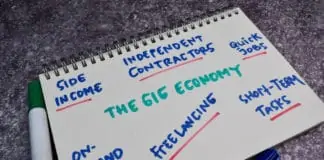 SIDE
INCOME
INDEPENDENT
CONTRACTORS
QUICK
JOBS
THE GIG ECONOMY
ON-
FREELANCING
SHORT-TERM
TASKS